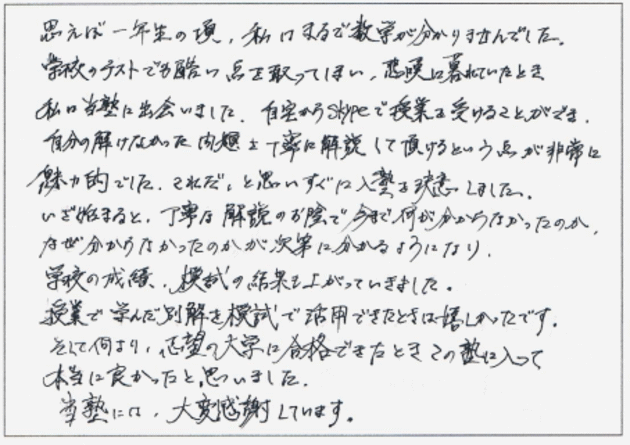 思えば一年生の頃、私はまるで数学が分かりませんでした。
学校のテストでも酷い点を取ってしまい、悲嘆に暮れていたとき
私は当塾に出会いました。自宅からSkypeで授業を受けることができ、
自分の解けなかった問題を丁寧に解説して頂けるという点が非常に
魅力的でした。これだ、と思いすぐに入塾を決意しました。
いざ始まると、丁寧な解説のお陰で今まで何が分からなかったのか、
なぜ分からなかったのかが次第に分かるようになり、
学校の成績、模試の結果も上がっていきました。
授業で学んだ別解を模試で活用できたときは嬉しかったです。
そして何より、志望の大学に合格できたときこの塾に入って
本当に良かったと思いました。
当塾には、大変感謝しています。